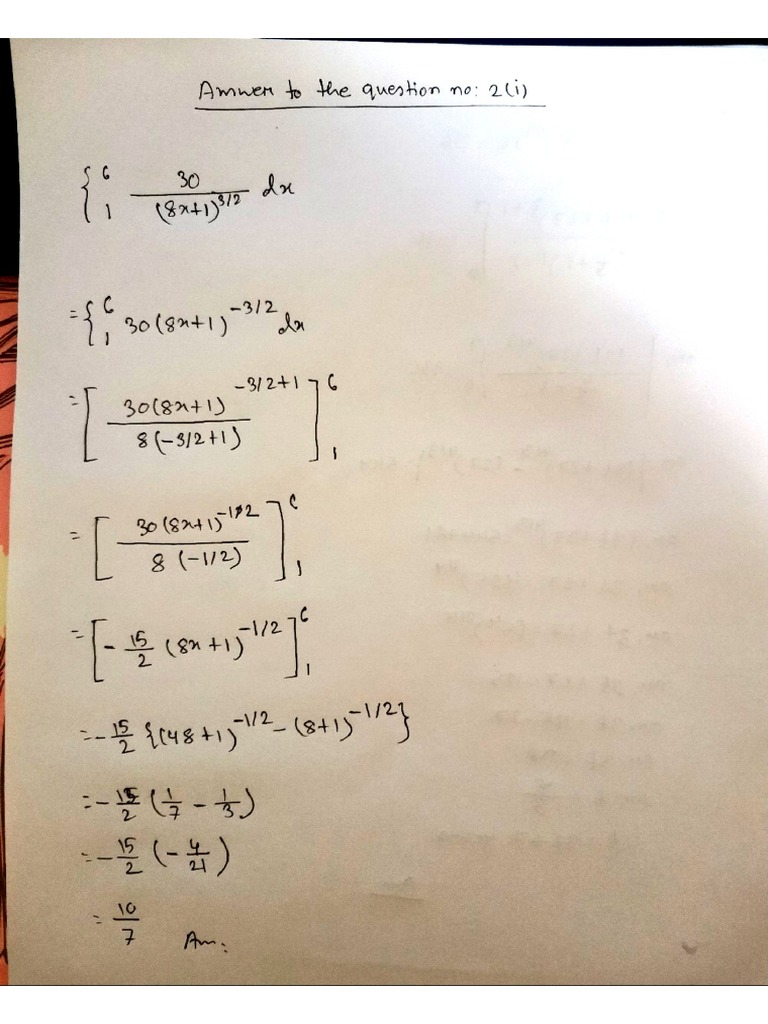 Answer to the question no: 2(i)
∫₁⁶ 30/(8x+1)^3/2 dx
= ∫₁⁶ 30(8x+1)^-3/2 dx
= [30(8x+1)^-3/2+1 / 8(-3/2+1)]₁⁶
= [30(8x+1)^-1/2 / 8(-1/2)]₁⁶
= [-15/2 (8x+1)^-1/2]₁⁶
= -15/2 {(48+1)^-1/2 - (8+1)^-1/2}
= -15/2 (1/7 - 1/3)
= -15/2 (-4/21)
= 10/7 Ans: